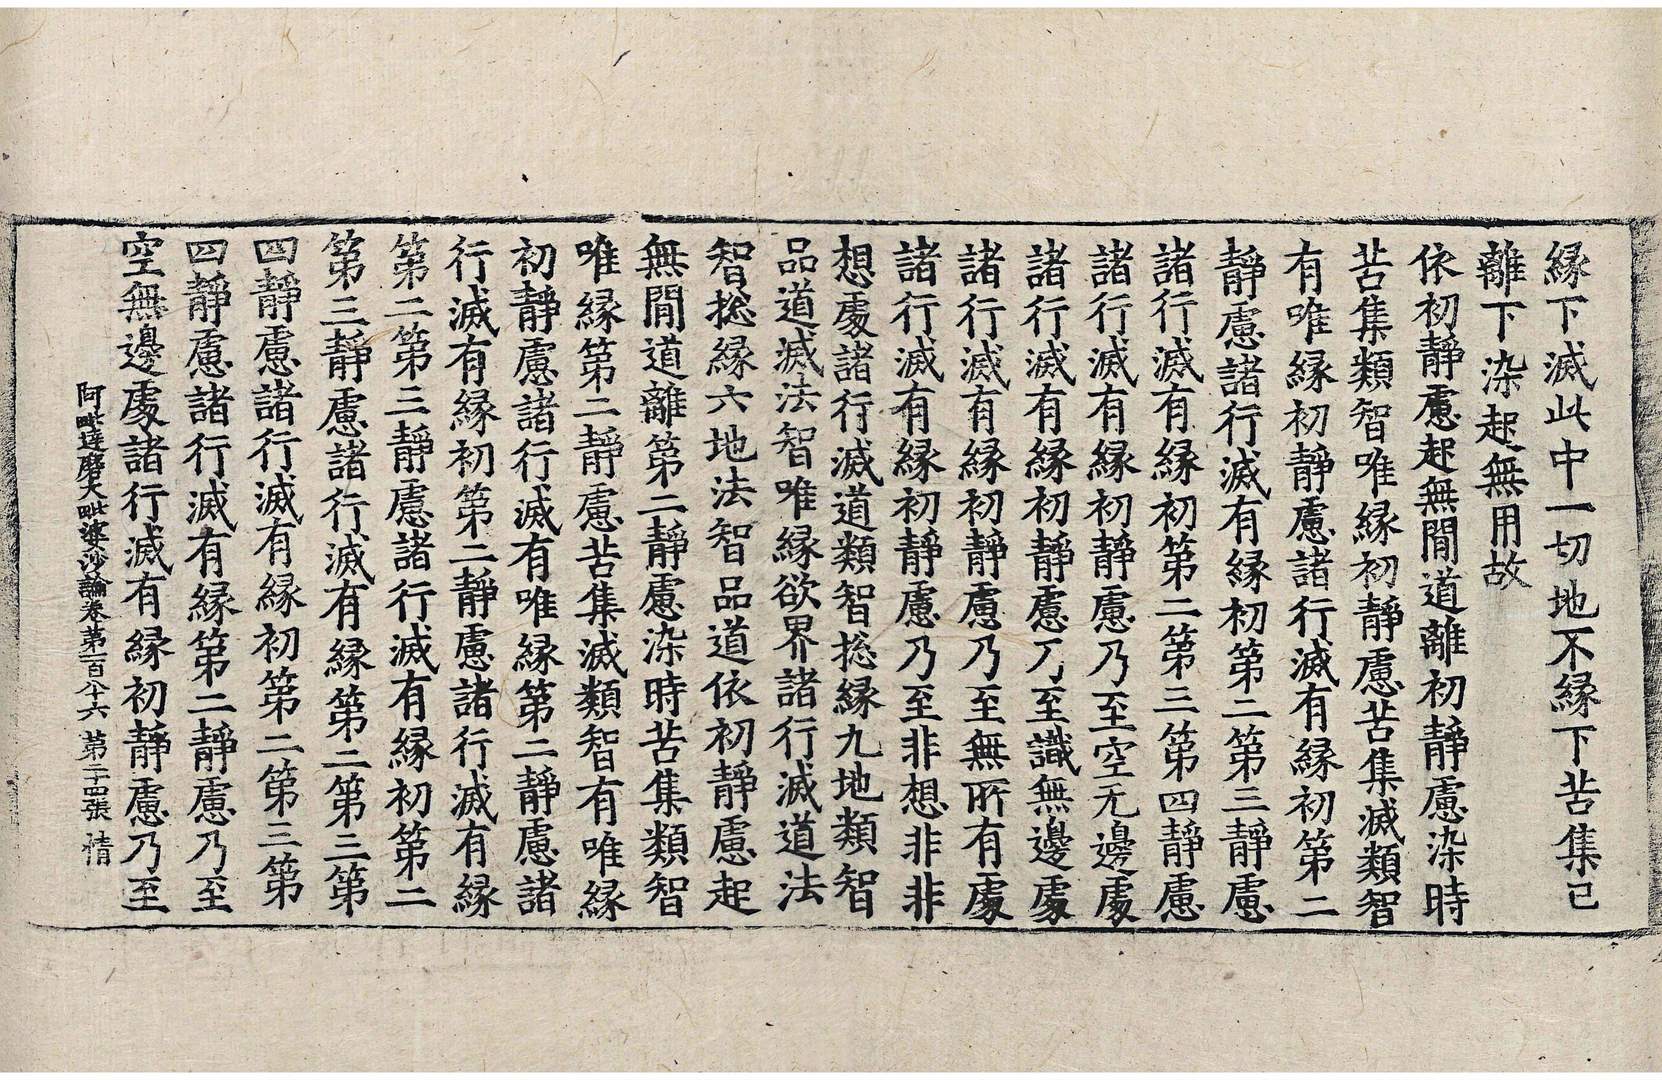 縁下滅此中一切地不縁下苦集已
離下染起無用故
依初靜慮起無間道離初靜慮染時
苦集類智唯縁初靜慮苦集滅類智
有唯縁初靜慮諸行滅有縁初第二
靜慮諸行滅有縁初第二第三靜慮
諸行滅有縁初第二第三第四靜慮
諸行滅有縁初靜慮乃至空无邊處
諸行滅有縁初靜慮乃至識無邊處
諸行滅有縁初靜慮乃至無所有處
諸行滅有縁初靜慮乃至非想非非
想處諸行滅道類智捴縁九地類智
品道滅法智唯縁欲界諸行滅道法
智捴縁六地法智品道依初靜慮起
無間道離第二靜慮染時苦集類智
唯縁第二靜慮苦集滅類智有唯縁
初靜慮諸行滅有唯縁第二靜慮諸
行滅有縁初第二靜慮諸行滅有縁
第二第三靜慮諸行滅有縁初第二
第三靜慮諸行滅有縁第二第三第
四靜慮諸行滅有縁初第二第三第
四靜慮諸行滅有縁第二靜慮乃至
空無邊處諸行滅有縁初靜慮乃至
阿毗達磨大毗婆沙論卷第一百八十六 第二十四張 情